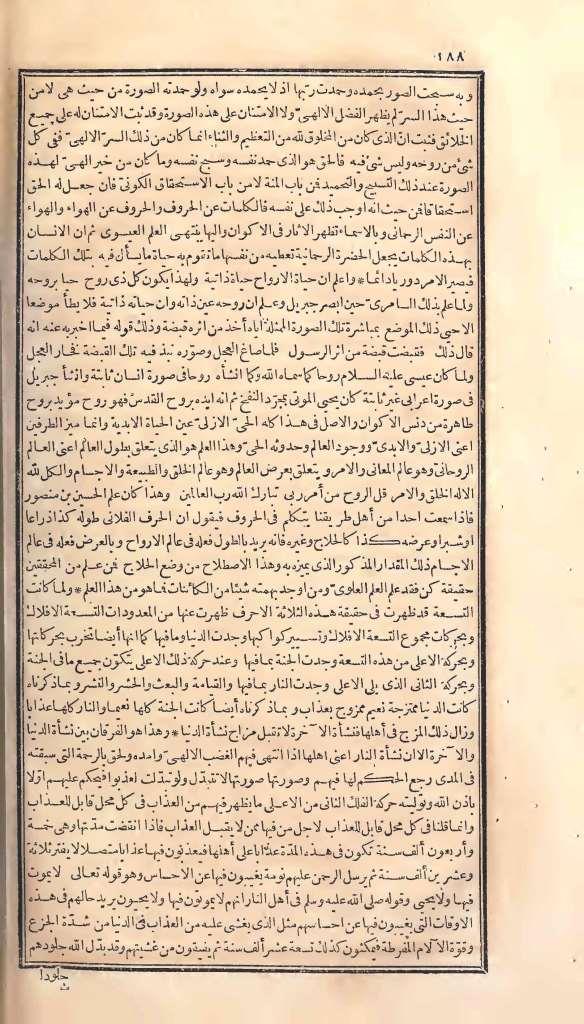 ١٨٨
وبه سبحت الصور بحمده وحمدت ربها اذ لا يحمده سواه ولو حمدته الصورة من حيث هى لا من
حيث هذا السر لم يظهر الفضل الالهى ولا الامتنان على هذه الصورة وقد ثبت الامتنان له على جميع
الخلائق فثبت انّ الذى كان من المخلوق لله من التعظيم والثناء انما كان من ذلك السر الالهى ففى كل
شئ من روحه وليس شئ فيه فالحق هو الذى حمد نفسه وسبح نفسه وما كان من خير الهى لهذه
الصورة عند ذلك التسبيح والتحميد فمن باب المنة لا من باب الاستحقاق الكونى فان جعل له الحق
استحقاقا فمن حيث انه اوجب ذلك على نفسه فالكلمات عن الحروف والحروف عن الهواء والهواء
عن النفس الرحمانى وبالاسماء تظهر الآثار فى الاكوان واليها ينتهى العلم العيسوى ثم ان الانسان
بهذه الكلمات يجعل الحضرة الرحمانية تعطيه من نفسها ما تقوم به حياة ما يسأل فيه بتلك الكلمات
فيصير الامر دوريا دائما * واعلم ان حياة الارواح حياة ذاتية ولهذا يكون كل ذى روح حيا بروحه
ولما علم بذلك السامرى حين ابصر جبريل وعلم ان روحه عين ذاته وان حياته ذاتية فلا يطأ موضعا
الا حيى ذلك الموضع بمباشرة تلك الصورة الممثلة اياه أخذ من اثره قبضة وذلك قوله فيما اخبر به عنه انه
قال ذلك فقبضت قبضة من اثر الرسول فلما صاغ العجل وصوّره نبذ فيه تلك القبضة فخار العجل
ولما كان عيسى عليه السلام روحا كما سماه الله وكما انشأه روحا فى صورة انسان ثابتة وانشأ جبريل
فى صورة اعرابى غير ثابتة كان يحيى الموتى بمجرّد النفخ ثم انه ايده بروح القدس فهو روح مؤيد بروح
طاهرة من دنس الاكوان والاصل فى هذا كله الحىّ الازلى عين الحياة الابدية وانما ميز الطرفين
اعنى الازلىّ والابدىّ وجود العالم وحدوثه الحىّ وهذا العلم هو الذى يتعلق بطول العالم اعنى العالم
الروحانى وهو عالم المعانى والامر ويتعلق بعرض العالم وهو عالم الخلق والطبيعة والاجسام والكل لله
الا له الخلق والامر قل الروح من أمر ربى تبارك الله رب العالمين وهذا كان علم الحسين بن منصور
فاذا سمعت احدا من أهل طريقنا يتكلم فى الحروف فيقول ان الحرف الفلانى طوله كذا ذراعا
او شبرا وعرضه كذا كالحلاج وغيره فانه يريد بالطول فعله فى عالم الارواح وبالعرض فعله فى عالم
الاجسام ذلك المقدار المذكور الذى يميزه به وهذا الاصطلاح من وضع الحلاج فمن علم من المحققين
حقيقة كن فقد علم العلم العلوى ومن اوجد بهمته شيئا من الكائنات فما هو من هذا العلم * ولما كانت
التسعة قد ظهرت فى حقيقة هذه الثلاثة الاحرف ظهرت عنها من المعدودات التسعة الافلاك
وبحركات مجموع التسعة الافلاك وتسيير كواكبها وجدت الدنيا وما فيها كما انها أيضا تخرب بحركاتها
وبحركة الاعلى من هذه التسعة وجدت الجنة بما فيها وعند حركة ذلك الاعلى يتكوّن جميع ما فى الجنة
وبحركة الثانى الذى يلى الاعلى وجدت النار بما فيها والقيامة والبعث والحشر والنشر وبما ذكرناه
كانت الدنيا ممتزجة نعيم ممزوج بعذاب وبما ذكرناه أيضا كانت الجنة كلها نعيما والنار كلها عذابا
وزال ذلك المزج فى أهلها فنشأة الآخرة لا تقبل مزاج نشأة الدنيا * وهذا هو الفرقان بين نشأة الدنيا
والآخرة الا ان نشأة النار اعنى اهلها اذا انتهى فيهم الغضب الالهى وامده ولحق بالرحمة التى سبقته
فى المدى رجع الحكم لها فيهم وصورتها صورتها لا تتبدّل ولو تبدّلت لعذبوا فيحكم عليهم اوّلا
باذن الله وتوليته حركة الفلك الثانى من الاعلى ما يظهر فيهم من العذاب فى كل محل قابل للعذاب
وانما قلنا فى كل محل قابل للعذاب لاجل من فيها ممن لا يقبل العذاب فاذا انقضت مدّتها وهى خمسة
وأربعون ألف سنة تكون فى هذه المدة عذابا على أهلها فيعذبون فيها عذابا متصلا لا يفتر ثلاثة
وعشرين ألف سنة ثم يرسل الرحمن عليهم نومة يغيبون فيها عن الاحساس وهو قوله تعالى لا يموت
فيها ولا يحيى وقوله صلى الله عليه وسلم فى أهل النار انهم لا يموتون فيها ولا يحيون يريد حالهم فى هذه
الاوقات التى يغيبون فيها عن احساسهم مثل الذى يغشى عليه من العذاب فى الدنيا من شدّة الجزع
وقوّة الآلام المفرطة فيمكثون كذلك تسعة عشر ألف سنة ثم يفيقون من غشيتهم وقد بدّل الله جلودهم
جلودا